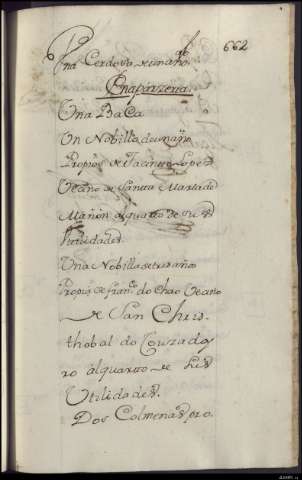 662
Una Cerdo de un año.
En aparzeria.
Una Baca
Un Nobillo de un año
Propio de Jacinto Lopez
Vecino de Santa Maria de
Mañon al quarto de sus
Utilidades.
Una Nobilla de tres años
Propia de Franco. do Chao Vecino
de San Chris
thobal do Couzado
ro al quarto de sus
Utilidades.
Dos Colmenas pro